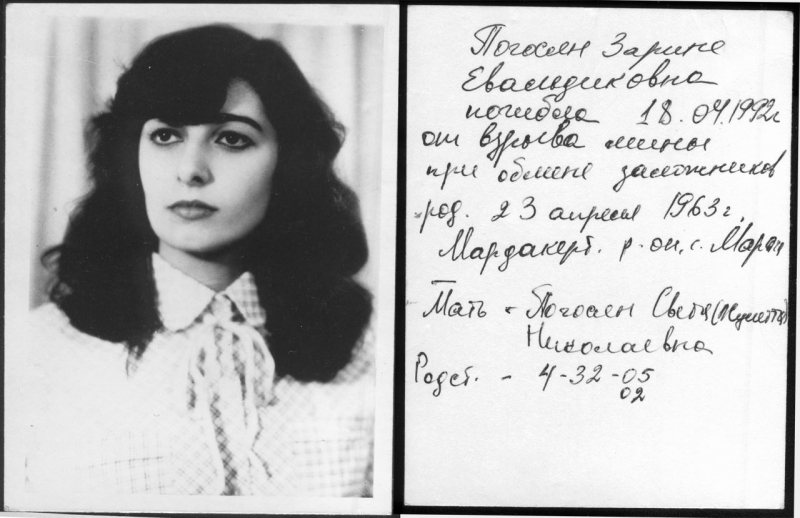 Погосян Зарине
Евальдиковна
погибла 18.04.1992г
от взрыва мины
при обмене заложников
род. 23 апреля 1963г.
Мардакерт. р-он, с. Марага
Мать - Погосян Света (Жульетта)
Николаевна
Родст. - 4-32-05
02